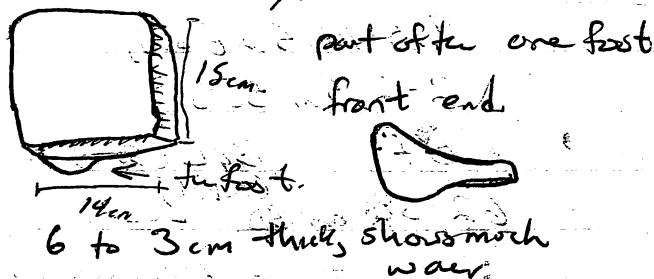 part of the one foot
15cm
front end
← the foot.
14cm
6 to 3 cm thick, shows much
wear